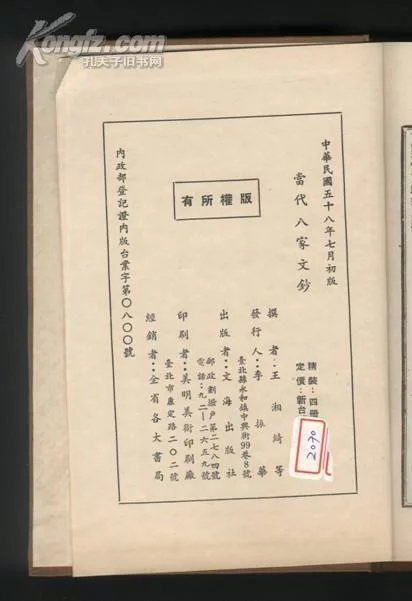 Kongfz.com
孔夫子旧书网
中華民國五十八年七月初版
當代八家文鈔
精裝：四冊
定價：新台
2070
撰者：王湘綺等
發行人：李振華
臺北縣永和鎮中興街99巷8號
出版者：文海出版社
郵政劃撥戶第二七八四號
電話：九二一二六五九號
印刷者：美明美術印刷廠
臺北市康定路二〇二號
經銷者：全省各大書局
版權所有
內政部登記證內版台業字第〇八〇〇號